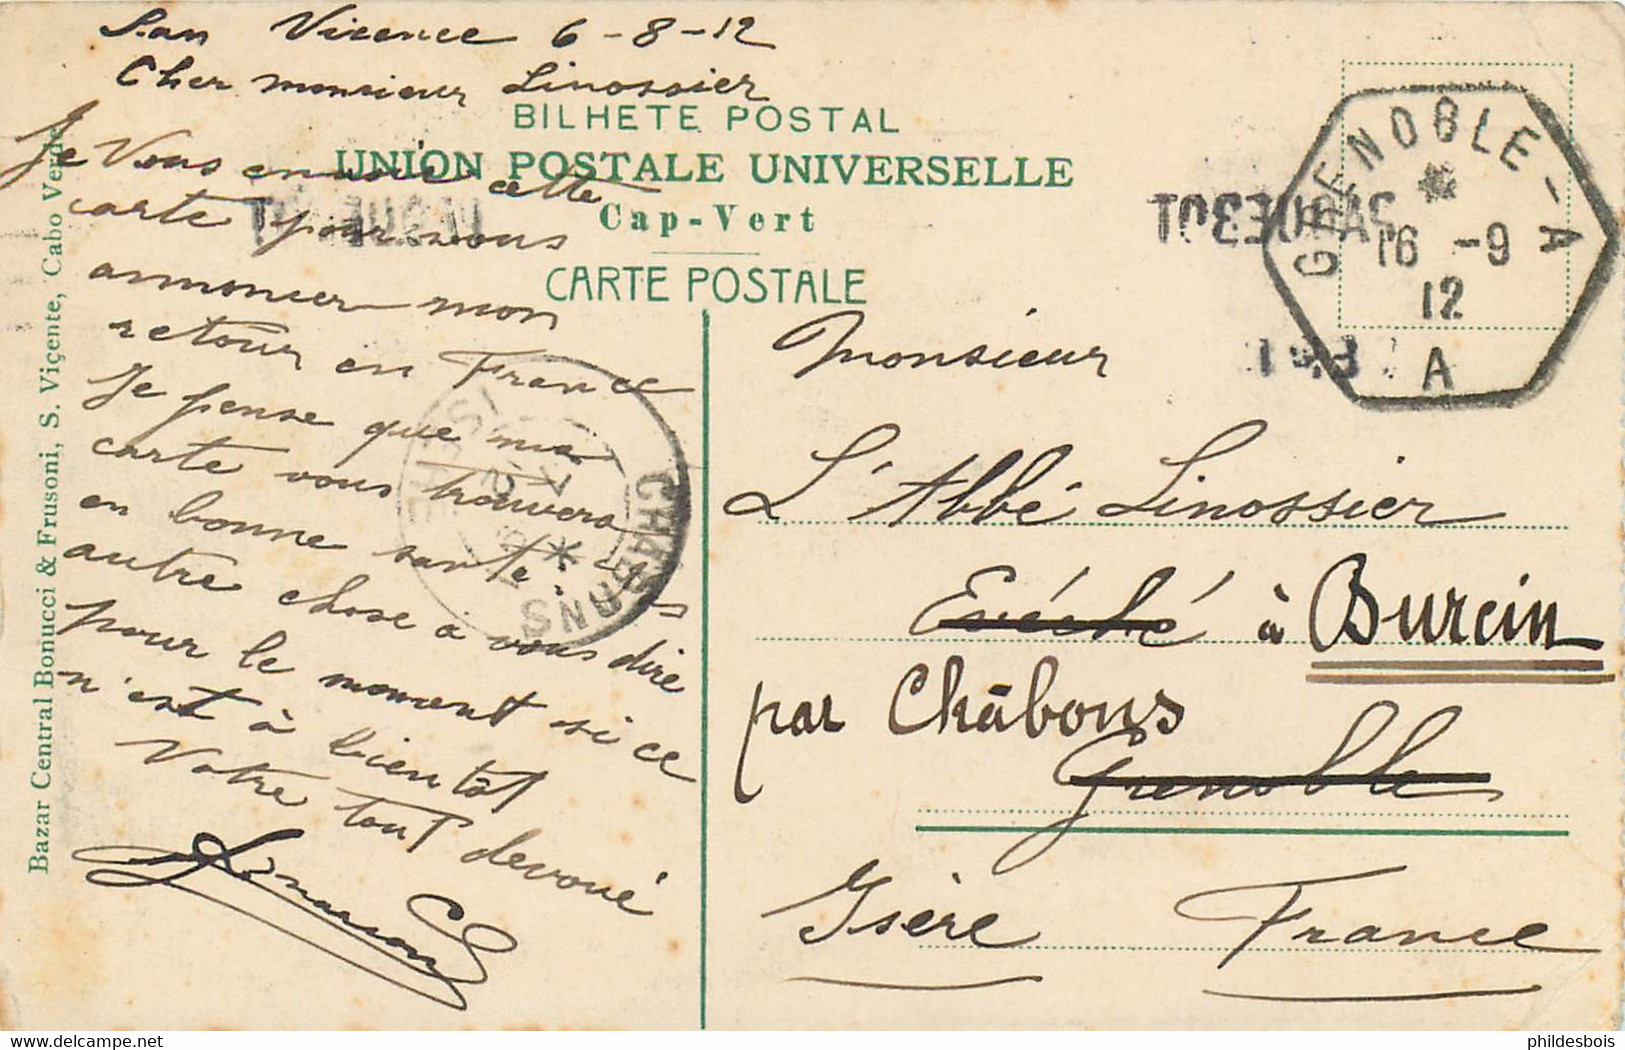 San Vicence 6-8-12
Cher monsieur Linossier
BILHETE POSTAL
UNION POSTALE UNIVERSELLE
Cap-Vert
CARTE POSTALE
Je Vous envoie cette
carte pour vous
annoncer mon
retour en France
Je pense que ma
carte vous trouvera
en bonne santé. Pas
autre chose à vous dire
pour le moment si ce
n'est à bientôt
Votre tout devoué
Bazar Central Bonucci & Frusoni, S. Viçente, Cabo Verde
PAQUEBOT
PAQUEBOT
GRENOBLE-A
16 -9
12
A
CHABONS
ISERE
Monsieur
L'Abbé Linossier
Evéché à Burcin
par Châbons
Grenoble
Isère France
phildesbois